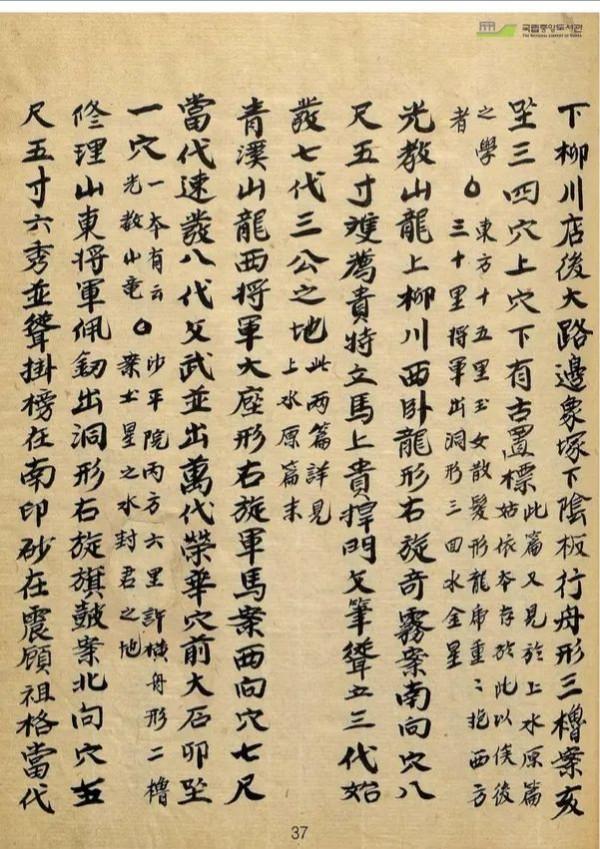 국립중앙도서관
THE NATIONAL LIBRARY OF KOREA
下柳川店後大路邊象塚下陰板行舟形三櫓案亥
坐三四穴上穴下有古置標
此篇又見於上水原篇
姑依本存於此以俟後
之學
者
〇
東方十五里玉女散髮形龍虎重〻抱西方
三十里將軍出洞形三回水金星
光教山龍上柳川西卧龍形右旋奇霧案南向穴八
尺五寸雙薦貴特立馬上貴撑門文筆聳立三代始
發七代三公之地
此兩篇詳見
上水原篇末
青溪山龍西將軍大座形右旋軍馬案西向穴七尺
當代速發八代文武並出萬代榮華穴前大石卯坐
一穴
一本有云
光教山竜
〇
沙平院丙方六里許横舟形二櫓
案土星之水封君之地
修理山東將軍佩釼出洞形右旋旗皷案北向穴五
尺五寸六秀並聳掛榜在南印砂在震顧祖格當代
37